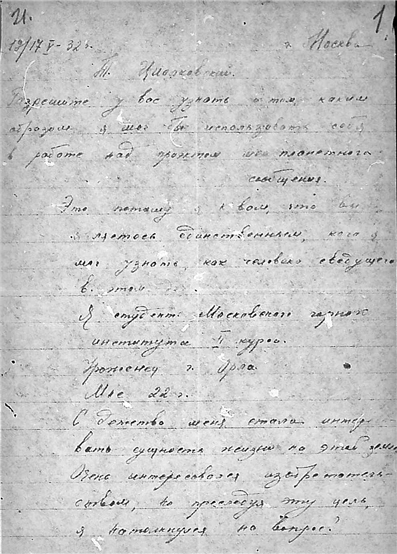 И. 1.
19/17 V-32 г. г. Москва
Т. Циолковский.
Разрешите у вас узнать о том, каким
образом я мог бы использовать себя
в работе над проэктом меж планетного
сообщения.
Это потому я к вам, что вы
являетесь единственным, кого я
мог узнать, как человека сведущего
в этом
Я студент Московского горного
института II курса.
Уроженец г. Орла
Мне 22 г.
С детства меня стала интере-
вать сущность жизни на этой земле
Очень интересовался изобретатель-
ством, но преследуя эту цель,
я натолкнулся на "вопрос?